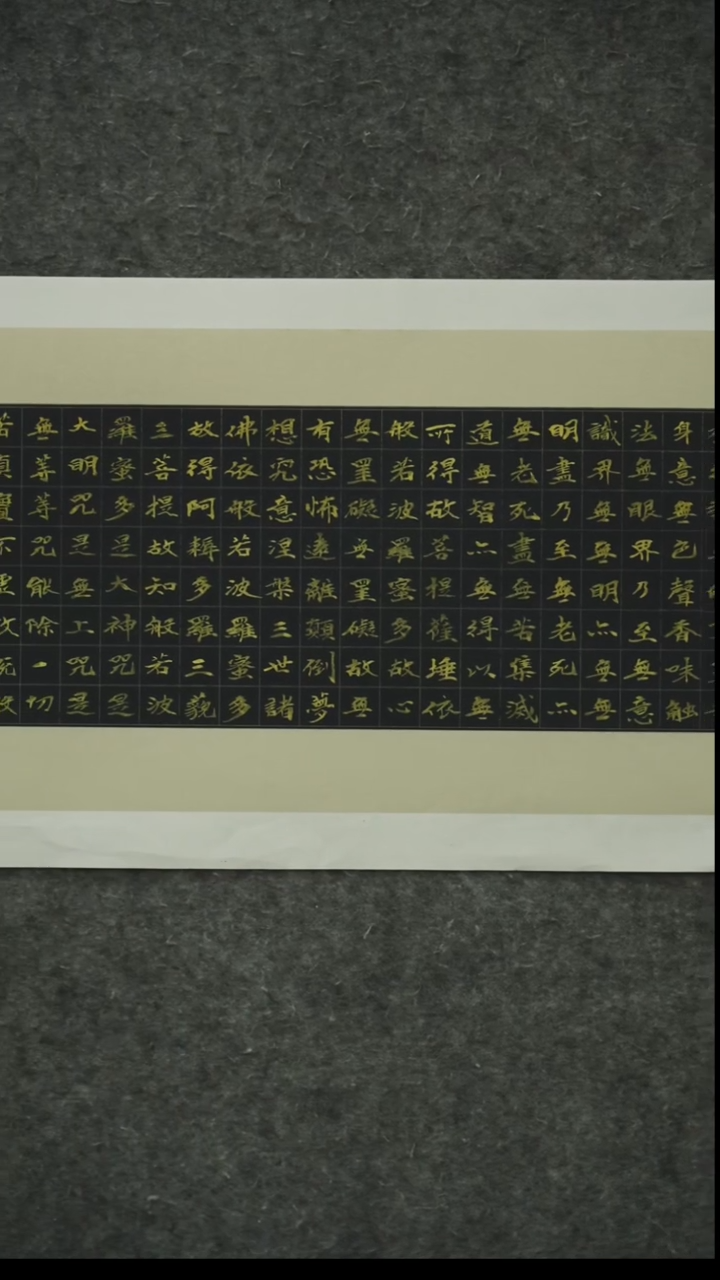 身意無色聲香味触
法無眼界乃至無意
識界無無明亦無無
明盡乃至無老死亦
無老死盡無苦集滅
道無智亦無得以無
所得故菩提薩埵依
般若波羅蜜多故心
無罣礙無罣礙故無
有恐怖遠離顛倒夢
想究意涅槃三世諸
佛依般若波羅蜜多
故得阿耨多羅三藐
三菩提故知般若波
羅蜜多是大神咒是
大明咒是無上咒是
無等等咒能除一切